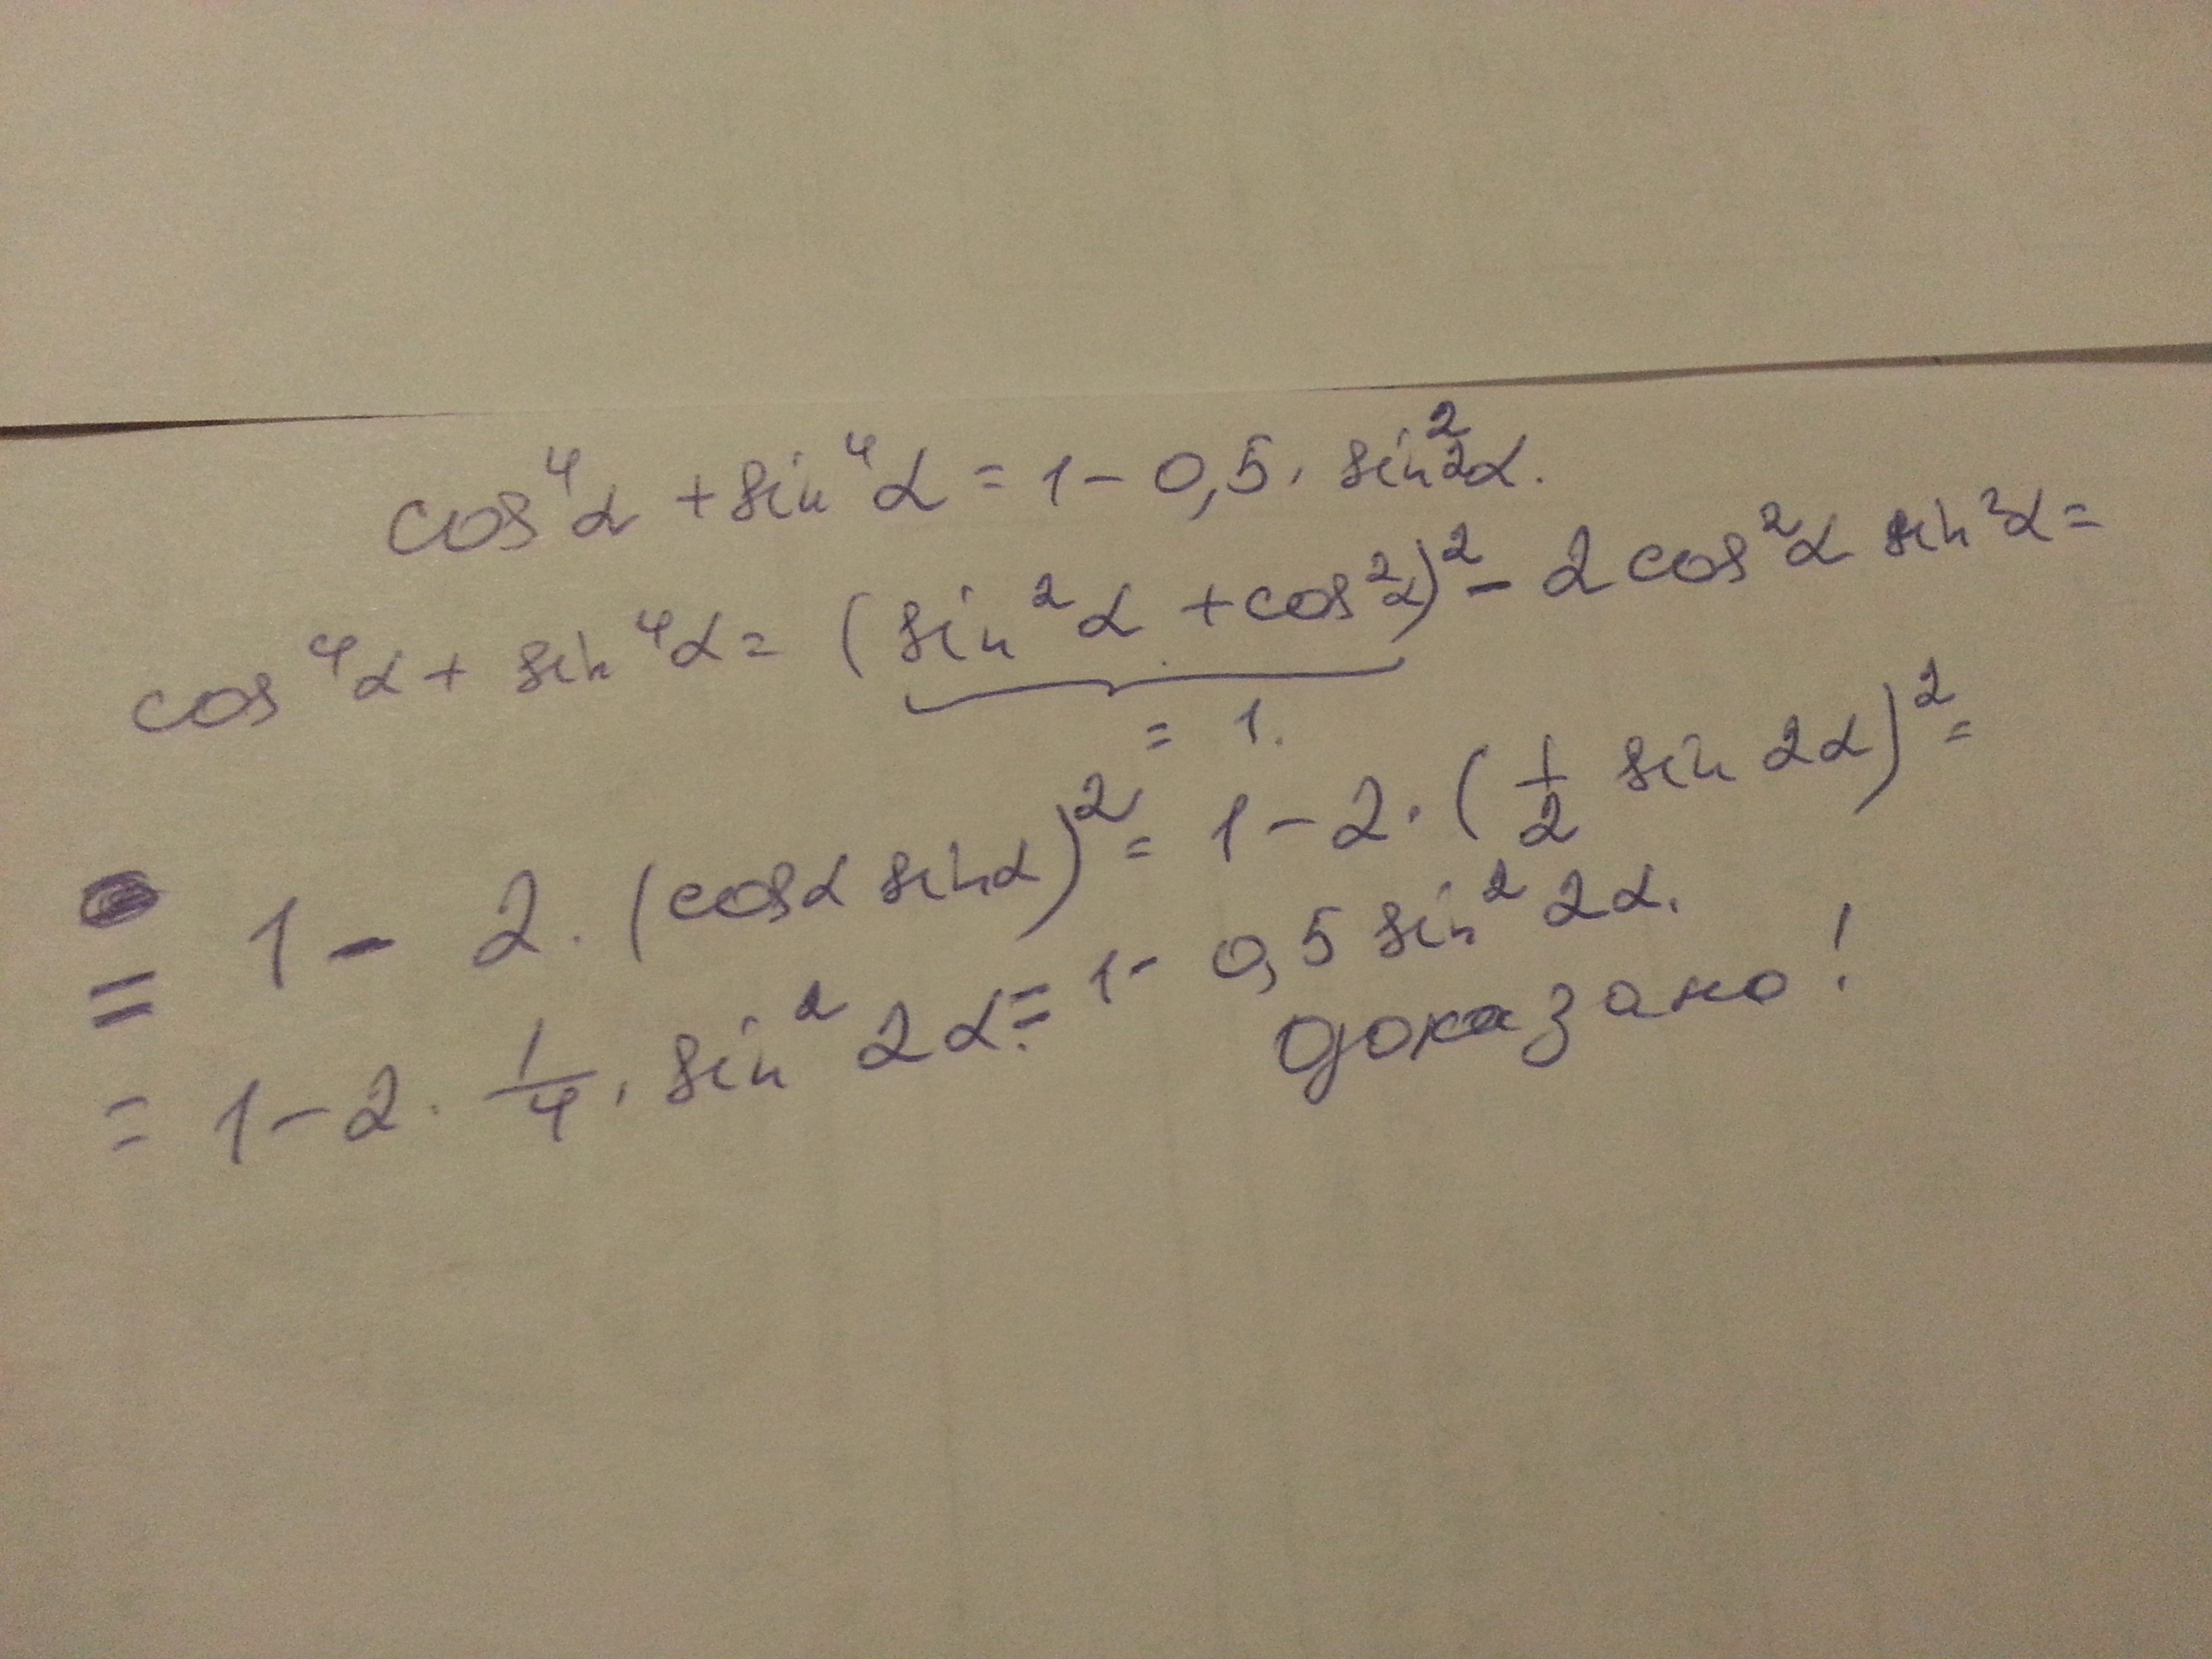 cos⁴α + sin⁴α = 1 − 0,5 · sin²2α.
cos⁴α + sin⁴α = (sin²α + cos²α)² − 2cos²α sin²α =
= 1.
= 1 − 2 · (cosα sinα)² = 1 − 2 · (1/2 sin 2α)² =
= 1 − 2 · 1/4 · sin² 2α = 1 − 0,5 sin² 2α.
доказано!